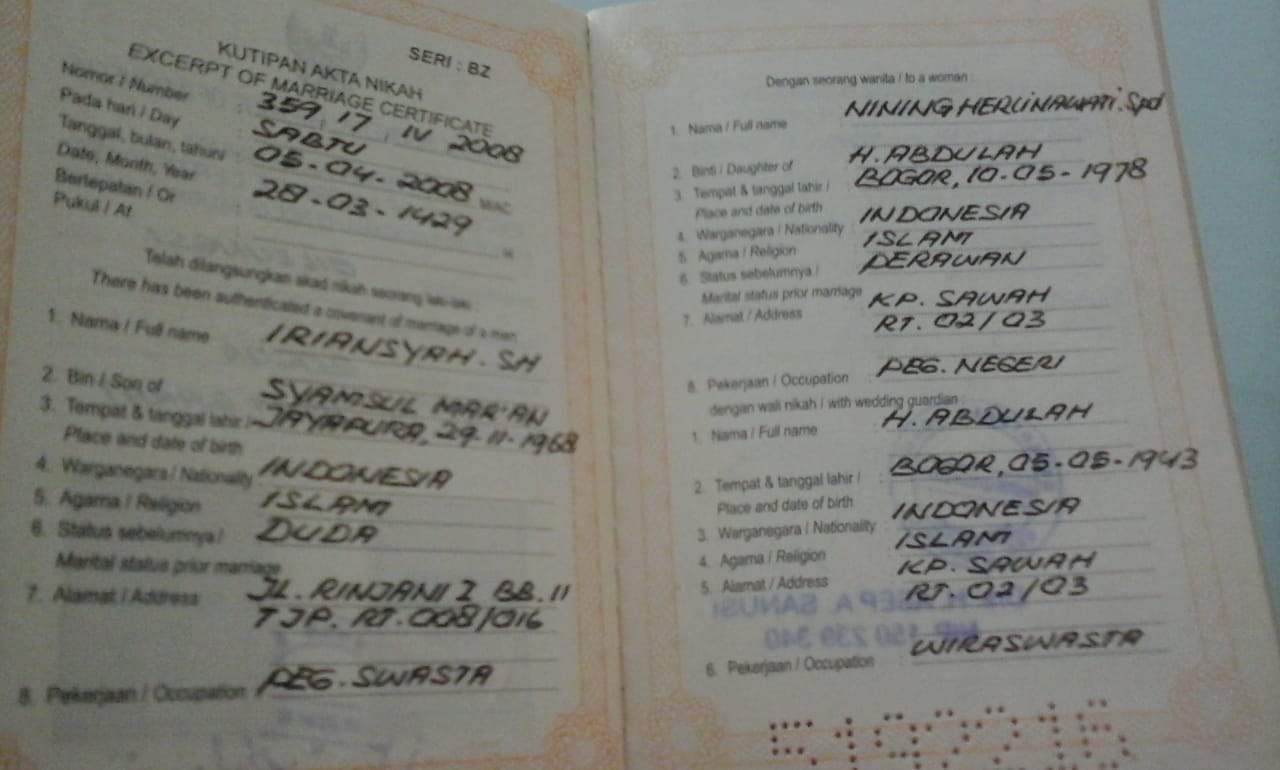 SERI : BZ
KUTIPAN AKTA NIKAH
EXCERPT OF MARRIAGE CERTIFICATE
Nomor / Number : 359 / 17 / IV 2008
Pada hari / Day : SABTU
Tanggal, bulan, tahun/ : 05-04-2008 M/AC
Date, Month, Year
Bertepatan / Or : 28-03-1429
Pukul / At H
Telah dilangsungkan akad nikah seorang laki-laki
There has been authenticated a covenant of marriage of a man
1. Nama / Full name IRIANSYAH. SH
2. Bin / Son of SYAMSUL MAR'AN
3. Tempat & tanggal lahir / JAYAPURA, 29-11-1968
Place and date of birth
4. Warganegara / Nationality INDONESIA
5. Agama / Religion ISLAM
6. Status sebelumnya / DUDA
Marital status prior marriage
7. Alamat / Address JL. RINJANI I BB. 11
TJP. RT. 008/016
8. Pekerjaan / Occupation PEG. SWASTA
Dengan seorang wanita / to a woman :
1. Nama / Full name NINING HERLINAWATI. Spd
2. Binti / Daughter of H. ABDULAH
3. Tempat & tanggal lahir / BOGOR, 10-05-1978
Place and date of birth
4. Warganegara / Nationality INDONESIA
5. Agama / Religion ISLAM
6. Status sebelumnya / PERAWAN
Marital status prior marriage
7. Alamat / Address KP. SAWAH
RT. 02/03
8. Pekerjaan / Occupation PEG. NEGERI
dengan wali nikah / with wedding guardian :
1. Nama / Full name H. ABDULAH
2. Tempat & tanggal lahir / BOGOR, 05-05-1943
Place and date of birth
3. Warganegara / Nationality INDONESIA
4. Agama / Religion ISLAM
5. Alamat / Address KP. SAWAH
RT. 02/03
6. Pekerjaan / Occupation : WIRASWASTA